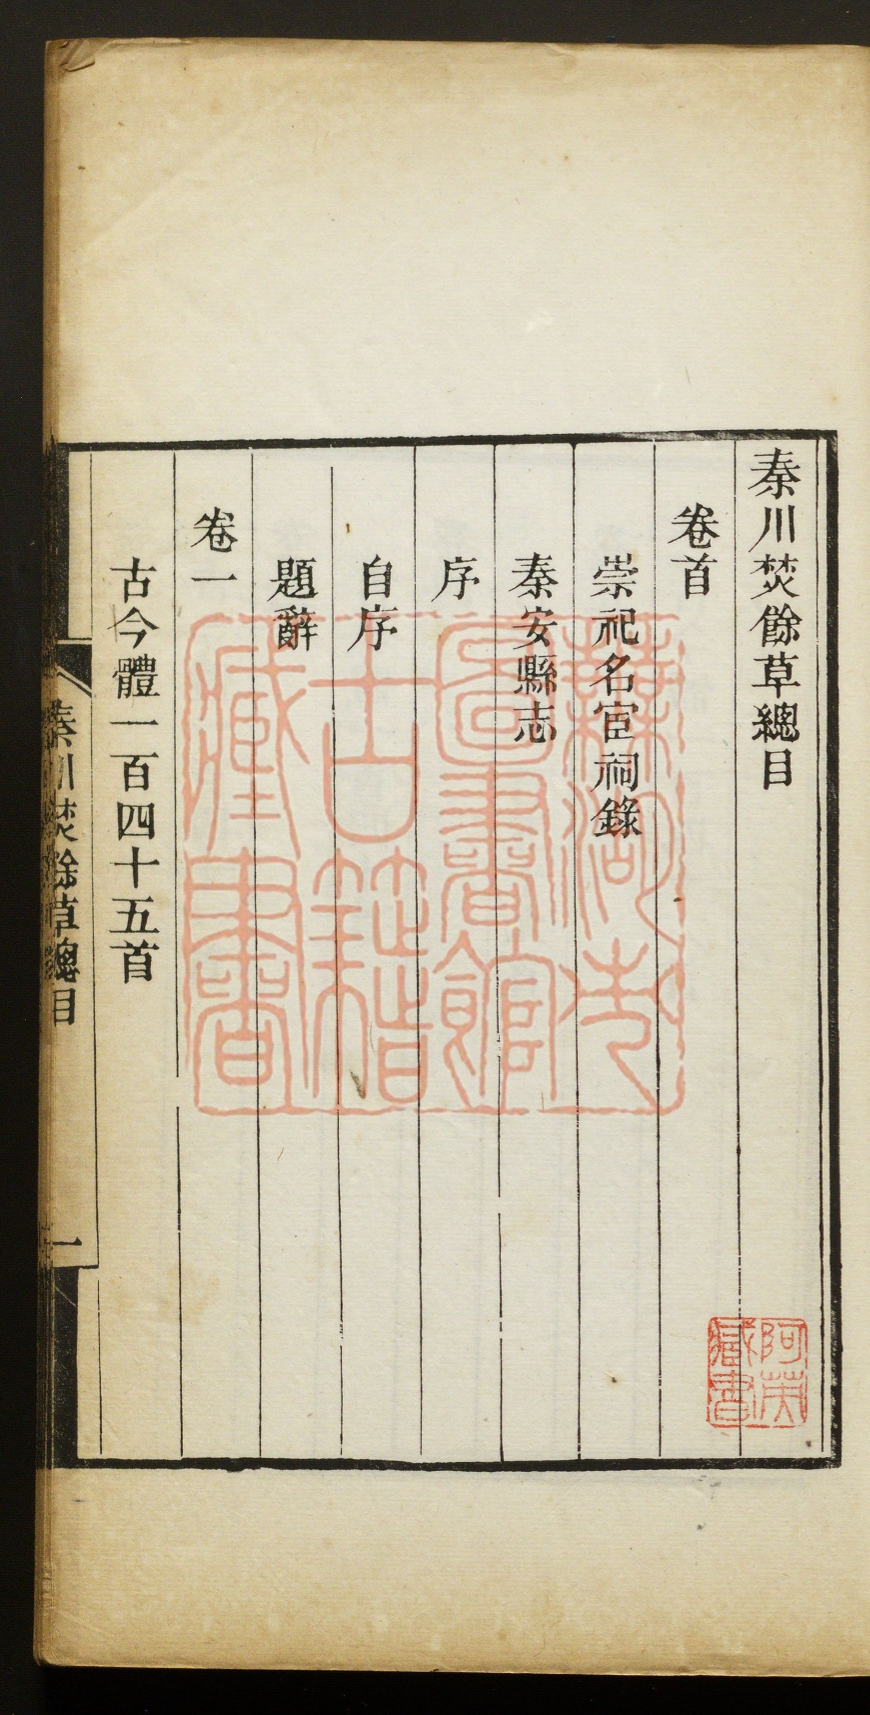 秦川焚餘草總目
卷首
崇祀名宦祠錄
秦安縣志
序
自序
題辭
卷一
古今體一百四十五首
秦川焚餘草總目
一
蕪湖市
圖書館
古籍
藏書
阿英
藏書